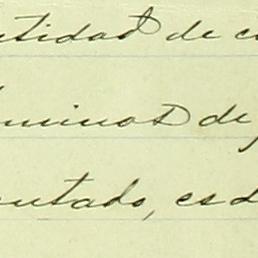 ntidad de c
minos de
ntado, es d